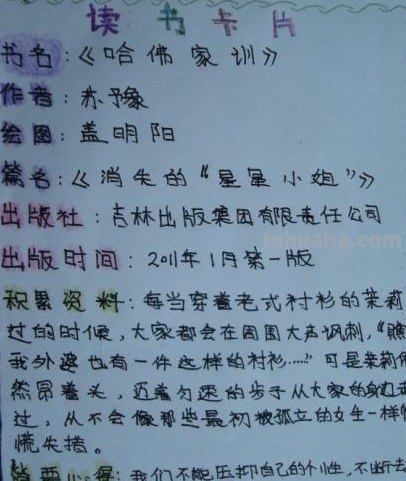 读书卡片
书名:《哈佛家训》
作者:苏豫
绘图:盖明阳
篇名:《消失的“星星小姐”》
出版社:吉林出版集团有限责任公司
tuhuaba.com
出版时间:2011年1月第一版
积累资料:每当穿着老式衬衫的茉莉
过的时候,大家都会在周围大声讽刺,“瞧
我外婆也有一件这样的衬衫……”可是茉莉
然昂着头,迈着匀速的步子从大家的身边
过,从不会像那些最初被孤立的女生一样
慌失措。
心得:我们不能压抑自己的个性,不断去